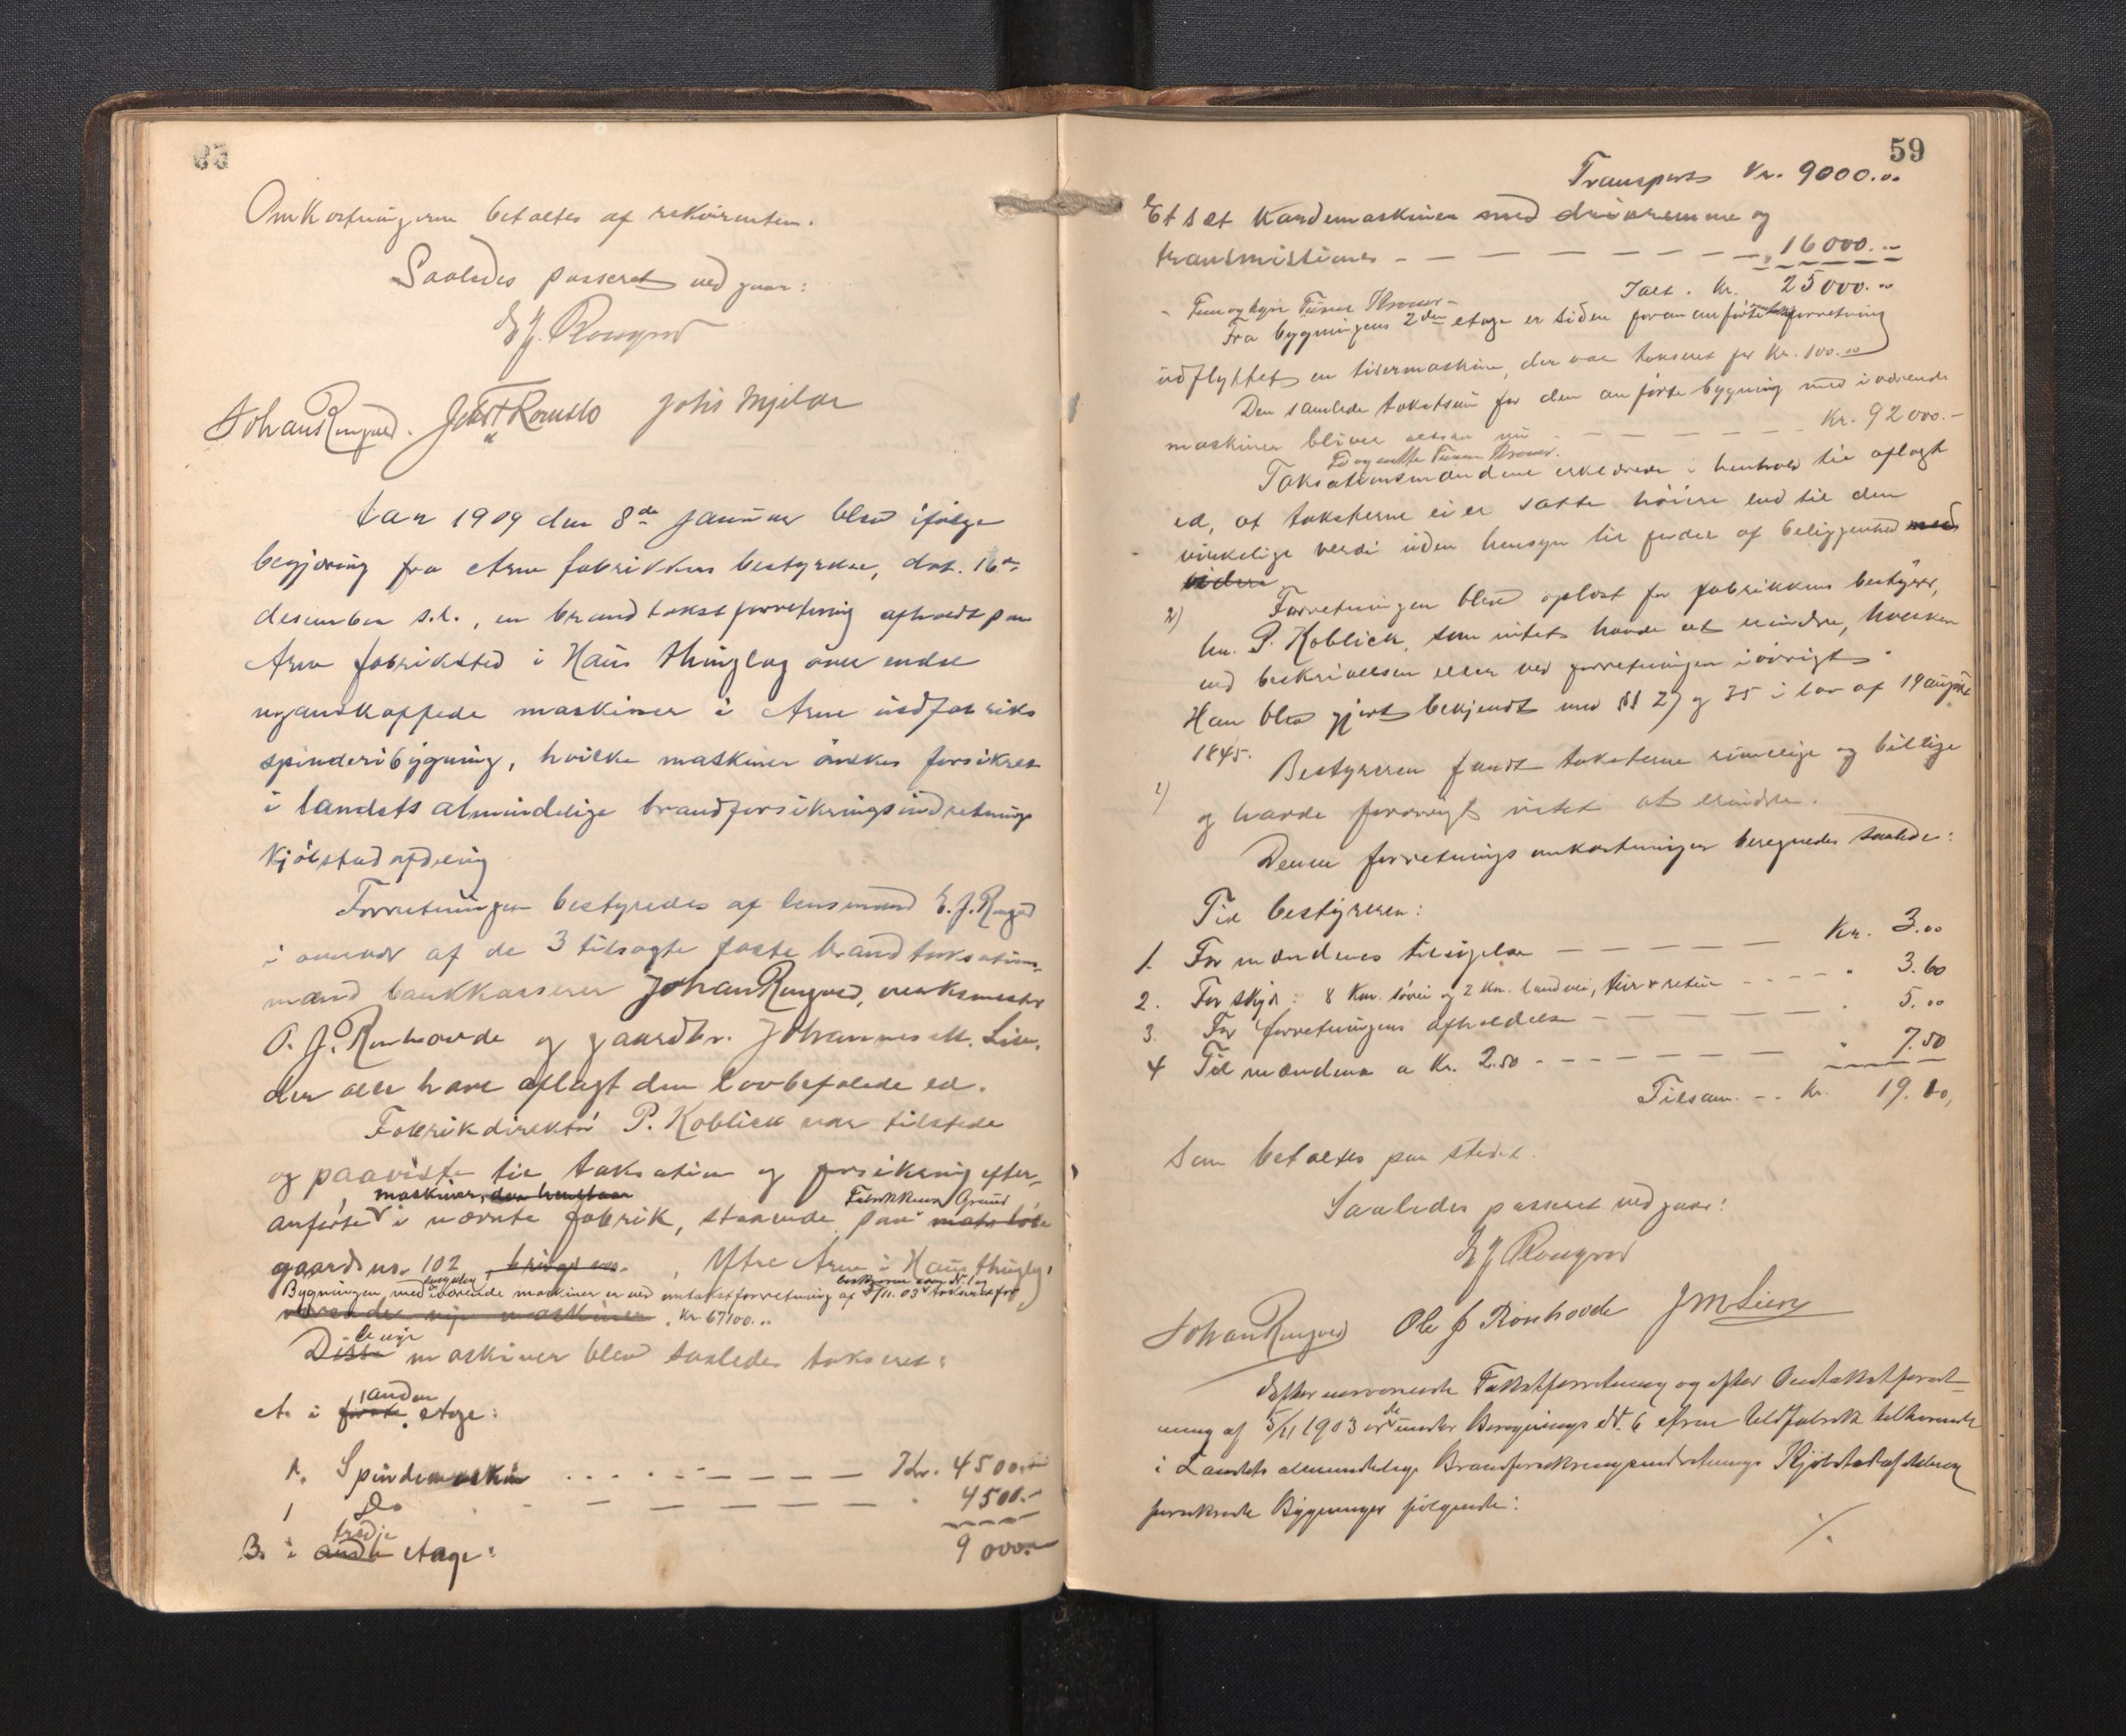 Omkostningerne betaltes af rekvirenten.
Saaledes passeret vedgaar:
E J. Rongved
Johan Rongved. Johs Mjelde
Aar 1909 den 8de januar blev ifølge
begjæring fra Arne fabrikkers bestyrelse, dat. 16de
desember s.l., en brandtakstforretning afholdt paa
Arne fabriksted i Haus thinglag over endel
nyanskaffede maskiner i Arne uldfabriks
spinderibygning, hvilke maskiner ønskes forsikret
i landets almindelige brandforsikringsindretnings
kjøbstadafdeling
Forretningen bestyredes af lensmand E. J. Rongved
i overvær af de 3 tilsagte faste brandtaksations-
mænd bankkasserer Johan Rongved, verksmester
O. J. Ronhovde og gaardbr. Johannes M. Lien,
der alle have aflagt den lovbefalede ed.
Fabrikdirektør P. Koblick var tilstede
og paaviste til taksation og forsikring efter-
maskiner, Fabrikkens Grund
anførte i nævnte fabrik, staaende paa
gaards no. 102 Ytre Arne i Haus thinglag,
Bygningen med iværende maskiner er ved omtakstforretning af 5/11. 03 takseret for
Kr 67100...
de nye
Disse maskiner blev saaledes takseret:
anden
A. i første etage:
1. Spindemaskin . . . . . . — — — Kr. 4500.-
1 Do — — — — — " 4500.-
tredje
B. i anden etage: 9000.-
59
Transport Kr. 9000.00
Et sæt kardemaskiner med drivremme og
transmissioner — — — — — — — " 16000.-
Ialt. Kr. 25000.00
- Fem og tyve Tusen Kroner -
Fra bygningens 2den etage er siden foran anførte forretning
udflyttet en tivermaskine, der var takseret for Kr. 100.00
Den samlede takstsum for den anførte bygning med iværende
maskiner bliver altsaa nu — — — — — — Kr. 92000.-
To og nitti Tusen Kroner.
Taksationsmændene erklærede i henhold til aflagt
ed, at taksterne ei er satte høiere end til den
virkelige verdi uden hensyn til fordel af beliggenhed med
videre
2) Forretningen blev oplæst for fabrikkens bestyrer,
hr. P. Koblick, som intet havde at erindre, hverken
ved beskrivelsen eller ved forretningen iøvrigt.
Han blev gjort bekjendt med §§ 27 og 35 i lov af 19 august
1845.
1) Bestyreren fandt taksterne rimelige og billige
og havde forøvrigt intet at erindre.
Denne forretnings omkostninger beregnedes saalede:
Til bestyreren:
1. For mændenes tilsigelse — — — — — Kr. 3.00
2. For skyds: 8 Km. søvei og 2 Km. landvei, tur & retur - - - " 3.60
3. For forretningens afholdelse — — — — — " 5.00
4 Til mændene a Kr. 2.50 - - - - - — — " 7.50
Tilsam. - - Kr. 19.10,
som betaltes paa stedet.
Saaledes passeret vedgaar:
E J Rongved
Johan Rongved Ole J Ronhovde J M Lien
Efter nærværende Takstforretning og efter Omtakstforret-
ning af 5/11 1903 er de under Bevognings Nr. 6 Arne Uldfabrik tilhørende
i Landets almindelige Brandforsikringsindretnings Kjøbstadafdeling
forsikrede Bygninger følgende:
./.